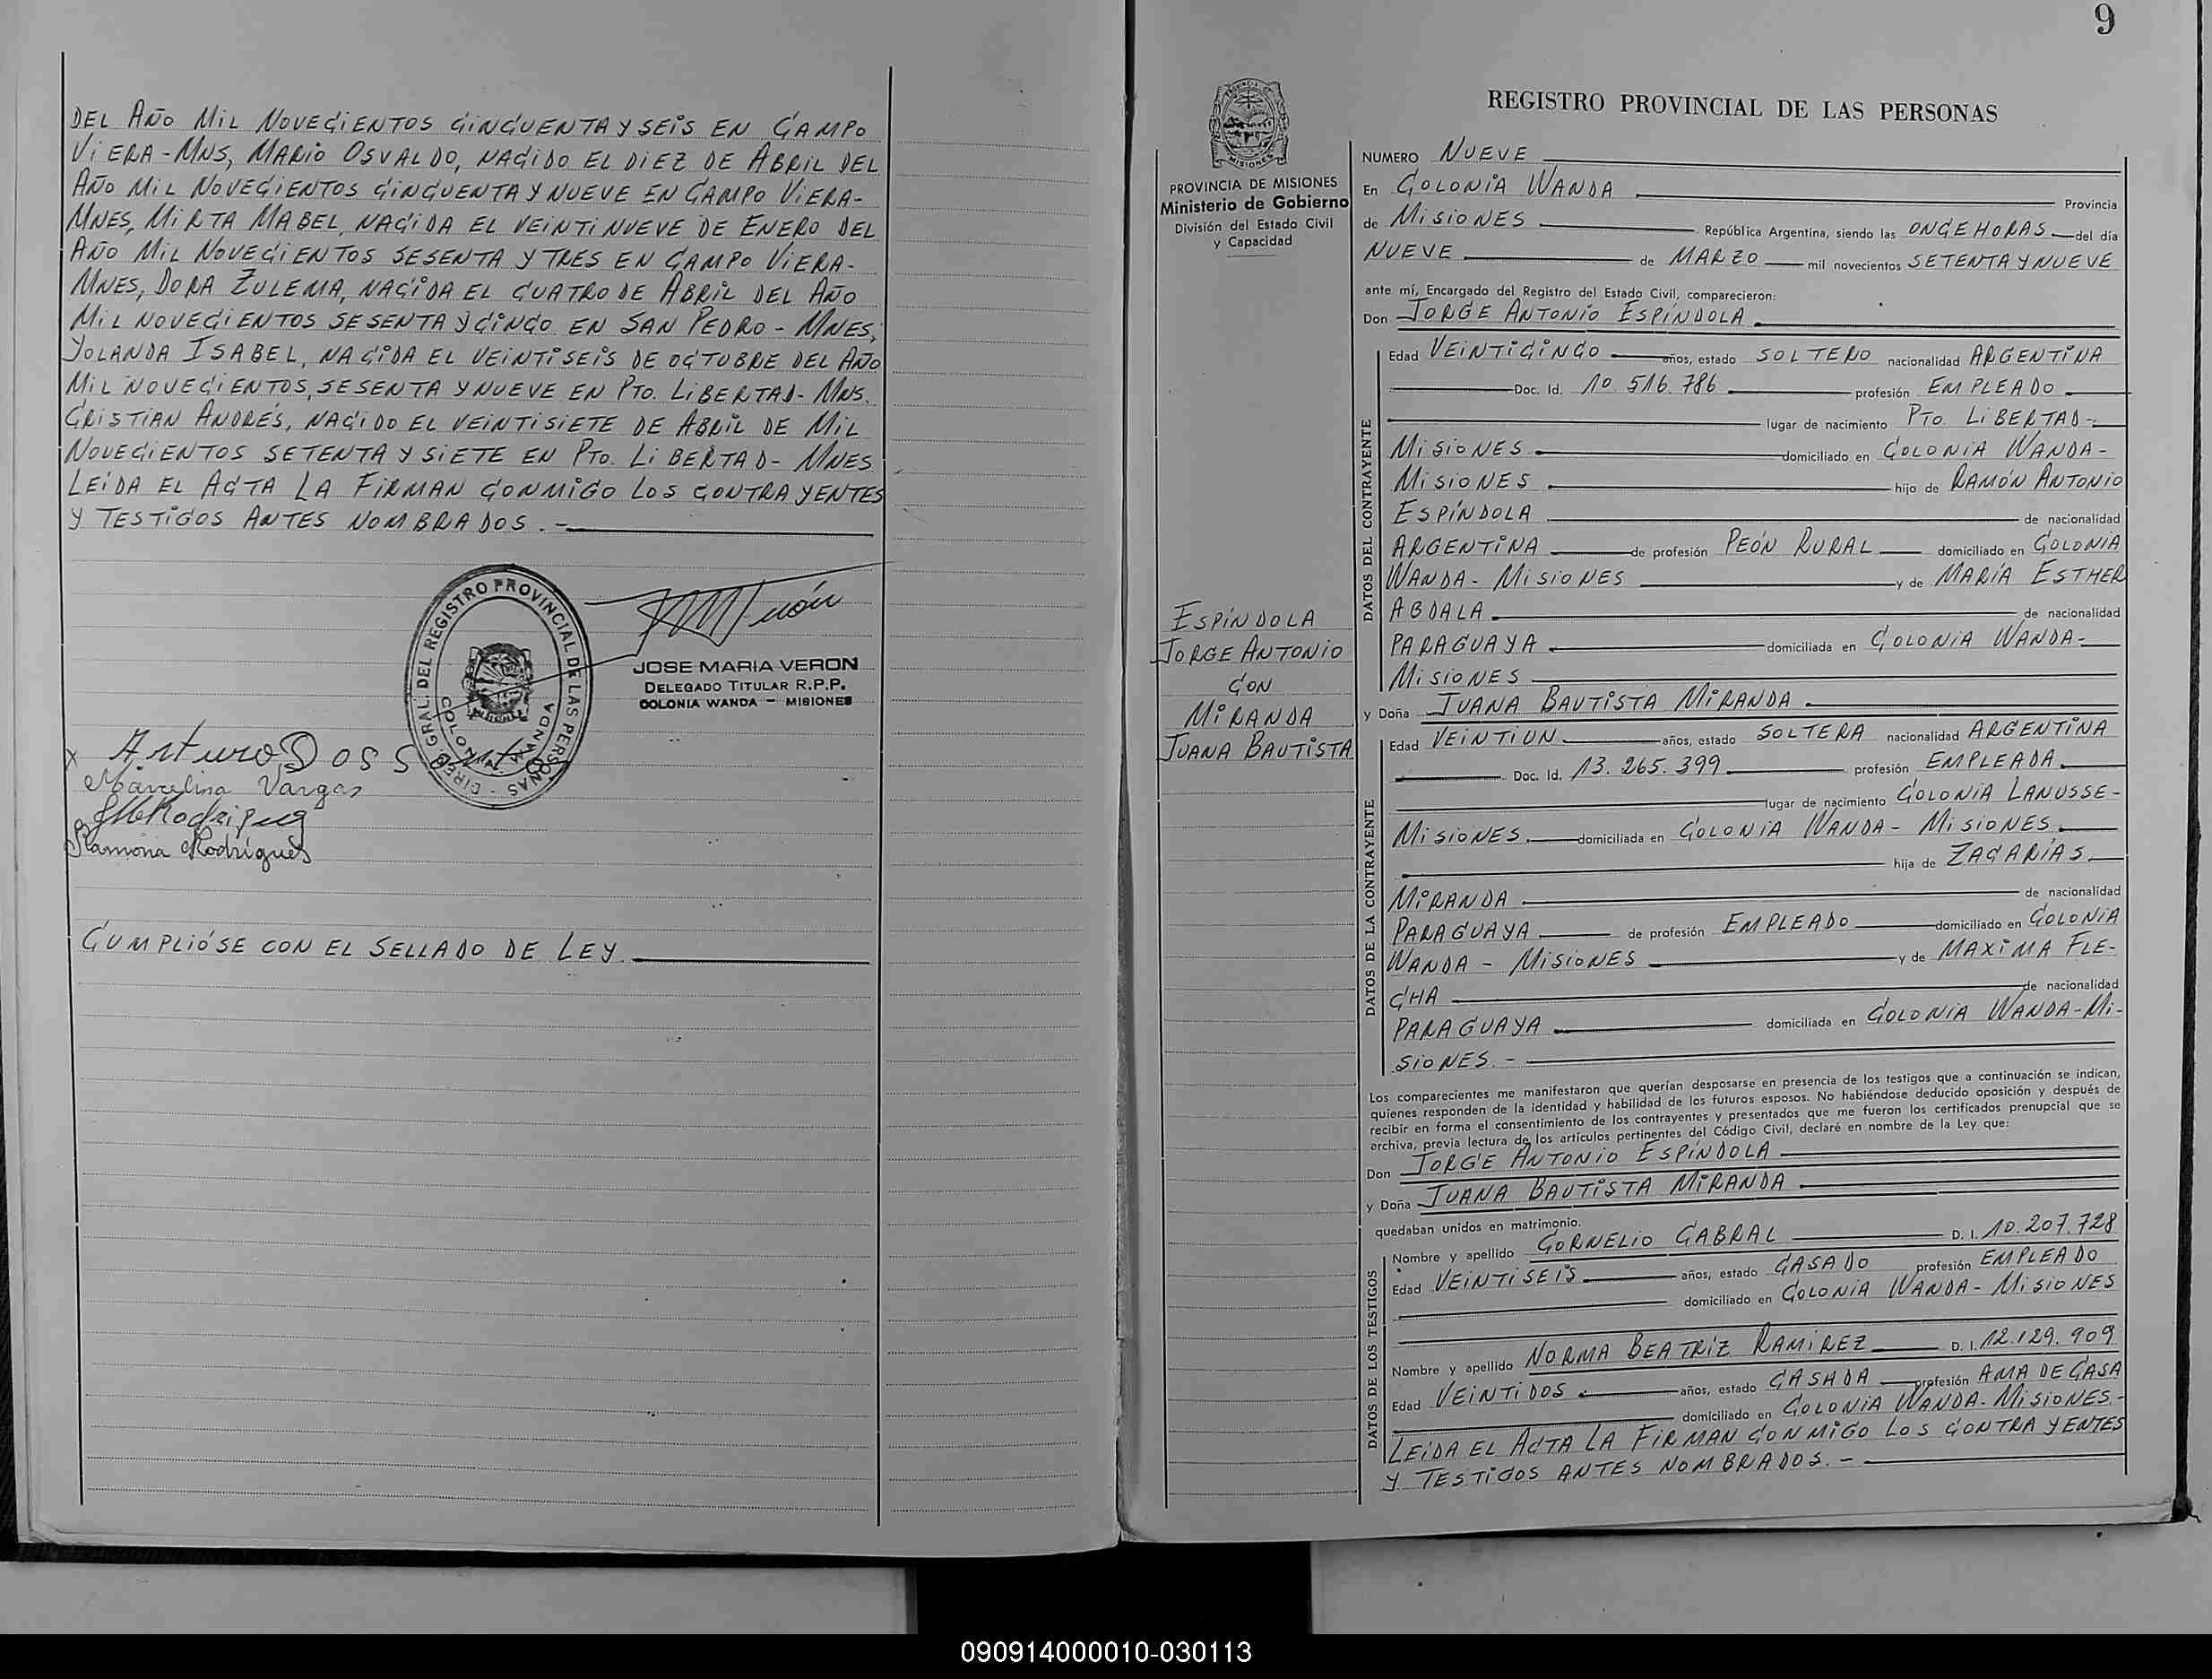 DEL AÑO MIL NOVECIENTOS CINCUENTA Y SEIS EN CAMPO
VIERA - MNS, MARIO OSVALDO, NACIDO EL DIEZ DE ABRIL DEL
AÑO MIL NOVECIENTOS CINCUENTA Y NUEVE EN CAMPO VIERA-
MNES, MIRTA MABEL, NACIDA EL VEINTINUEVE DE ENERO DEL
AÑO MIL NOVECIENTOS SESENTA Y TRES EN CAMPO VIERA-
MNES, DORA ZULEMA, NACIDA EL CUATRO DE ABRIL DEL AÑO
MIL NOVECIENTOS SESENTA Y CINCO EN SAN PEDRO - MNES,
YOLANDA ISABEL, NACIDA EL VEINTISEIS DE OCTUBRE DEL AÑO
MIL NOVECIENTOS, SESENTA Y NUEVE EN PTO. LIBERTAD - MNS.
CRISTIAN ANDRÉS, NACIDO EL VEINTISIETE DE ABRIL DE MIL
NOVECIENTOS SETENTA Y SIETE EN PTO. LIBERTAD - MNES
LEIDA EL ACTA LA FIRMAN CONMIGO LOS CONTRAYENTES
Y TESTIGOS ANTES NOMBRADOS. -
DIREC. GRAL. DEL REGISTRO PROVINCIAL DE LAS PERSONAS
COLONIA WANDA
JOSE MARIA VERON
DELEGADO TITULAR R.P.P.
COLONIA WANDA - MISIONES
x Arturo Doss
Marcelina Vargas
Rodriguez
Ramona Rodrigues
CUMPLIÓSE CON EL SELLADO DE LEY.
9
PROVINCIA DE MISIONES
Ministerio de Gobierno
División del Estado Civil
y Capacidad
ESPÍNDOLA
JORGE ANTONIO
CON
MIRANDA
JUANA BAUTISTA
REGISTRO PROVINCIAL DE LAS PERSONAS
NUMERO NUEVE
En COLONIA WANDA Provincia
de MISIONES República Argentina, siendo las ONCE HORAS del día
NUEVE de MARZO mil novecientos SETENTA Y NUEVE
ante mí, Encargado del Registro del Estado Civil, comparecieron:
Don JORGE ANTONIO ESPÍNDOLA
DATOS DEL CONTRAYENTE
Edad VEINTICINCO años, estado SOLTERO nacionalidad ARGENTINA
Doc. Id. 10.516.786 profesión EMPLEADO
lugar de nacimiento PTO. LIBERTAD-
MISIONES domiciliado en COLONIA WANDA-
MISIONES hijo de RAMÓN ANTONIO
ESPÍNDOLA de nacionalidad
ARGENTINA de profesión PEÓN RURAL domiciliado en COLONIA
WANDA - MISIONES y de MARÍA ESTHER
ABDALA de nacionalidad
PARAGUAYA domiciliada en COLONIA WANDA-
MISIONES
y Doña JUANA BAUTISTA MIRANDA
DATOS DE LA CONTRAYENTE
Edad VEINTIUN años, estado SOLTERA nacionalidad ARGENTINA
Doc. Id. 13.265.399 profesión EMPLEADA
lugar de nacimiento COLONIA LANUSSE-
MISIONES domiciliada en COLONIA WANDA - MISIONES
hija de ZACARÍAS
MIRANDA de nacionalidad
PARAGUAYA de profesión EMPLEADO domiciliado en COLONIA
WANDA - MISIONES y de MAXIMA FLE-
CHA de nacionalidad
PARAGUAYA domiciliada en COLONIA WANDA-MI-
SIONES. -
Los comparecientes me manifestaron que querían desposarse en presencia de los testigos que a continuación se indican,
quienes responden de la identidad y habilidad de los futuros esposos. No habiéndose deducido oposición y después de
recibir en forma el consentimiento de los contrayentes y presentados que me fueron los certificados prenupcial que se
archiva, previa lectura de los artículos pertinentes del Código Civil, declaré en nombre de la Ley que:
Don JORGE ANTONIO ESPÍNDOLA
y Doña JUANA BAUTISTA MIRANDA
quedaban unidos en matrimonio.
DATOS DE LOS TESTIGOS
Nombre y apellido CORNELIO CABRAL D. I. 10.207.728
Edad VEINTISEIS años, estado CASADO profesión EMPLEADO
domiciliado en COLONIA WANDA - MISIONES
Nombre y apellido NORMA BEATRIZ RAMIREZ D. I. 12.129.909
Edad VEINTIDOS años, estado CASADA profesión AMA DE CASA
domiciliado en COLONIA WANDA - MISIONES -
LEIDA EL ACTA LA FIRMAN CONMIGO LOS CONTRAYENTES
Y TESTIGOS ANTES NOMBRADOS. -
090914000010-030113